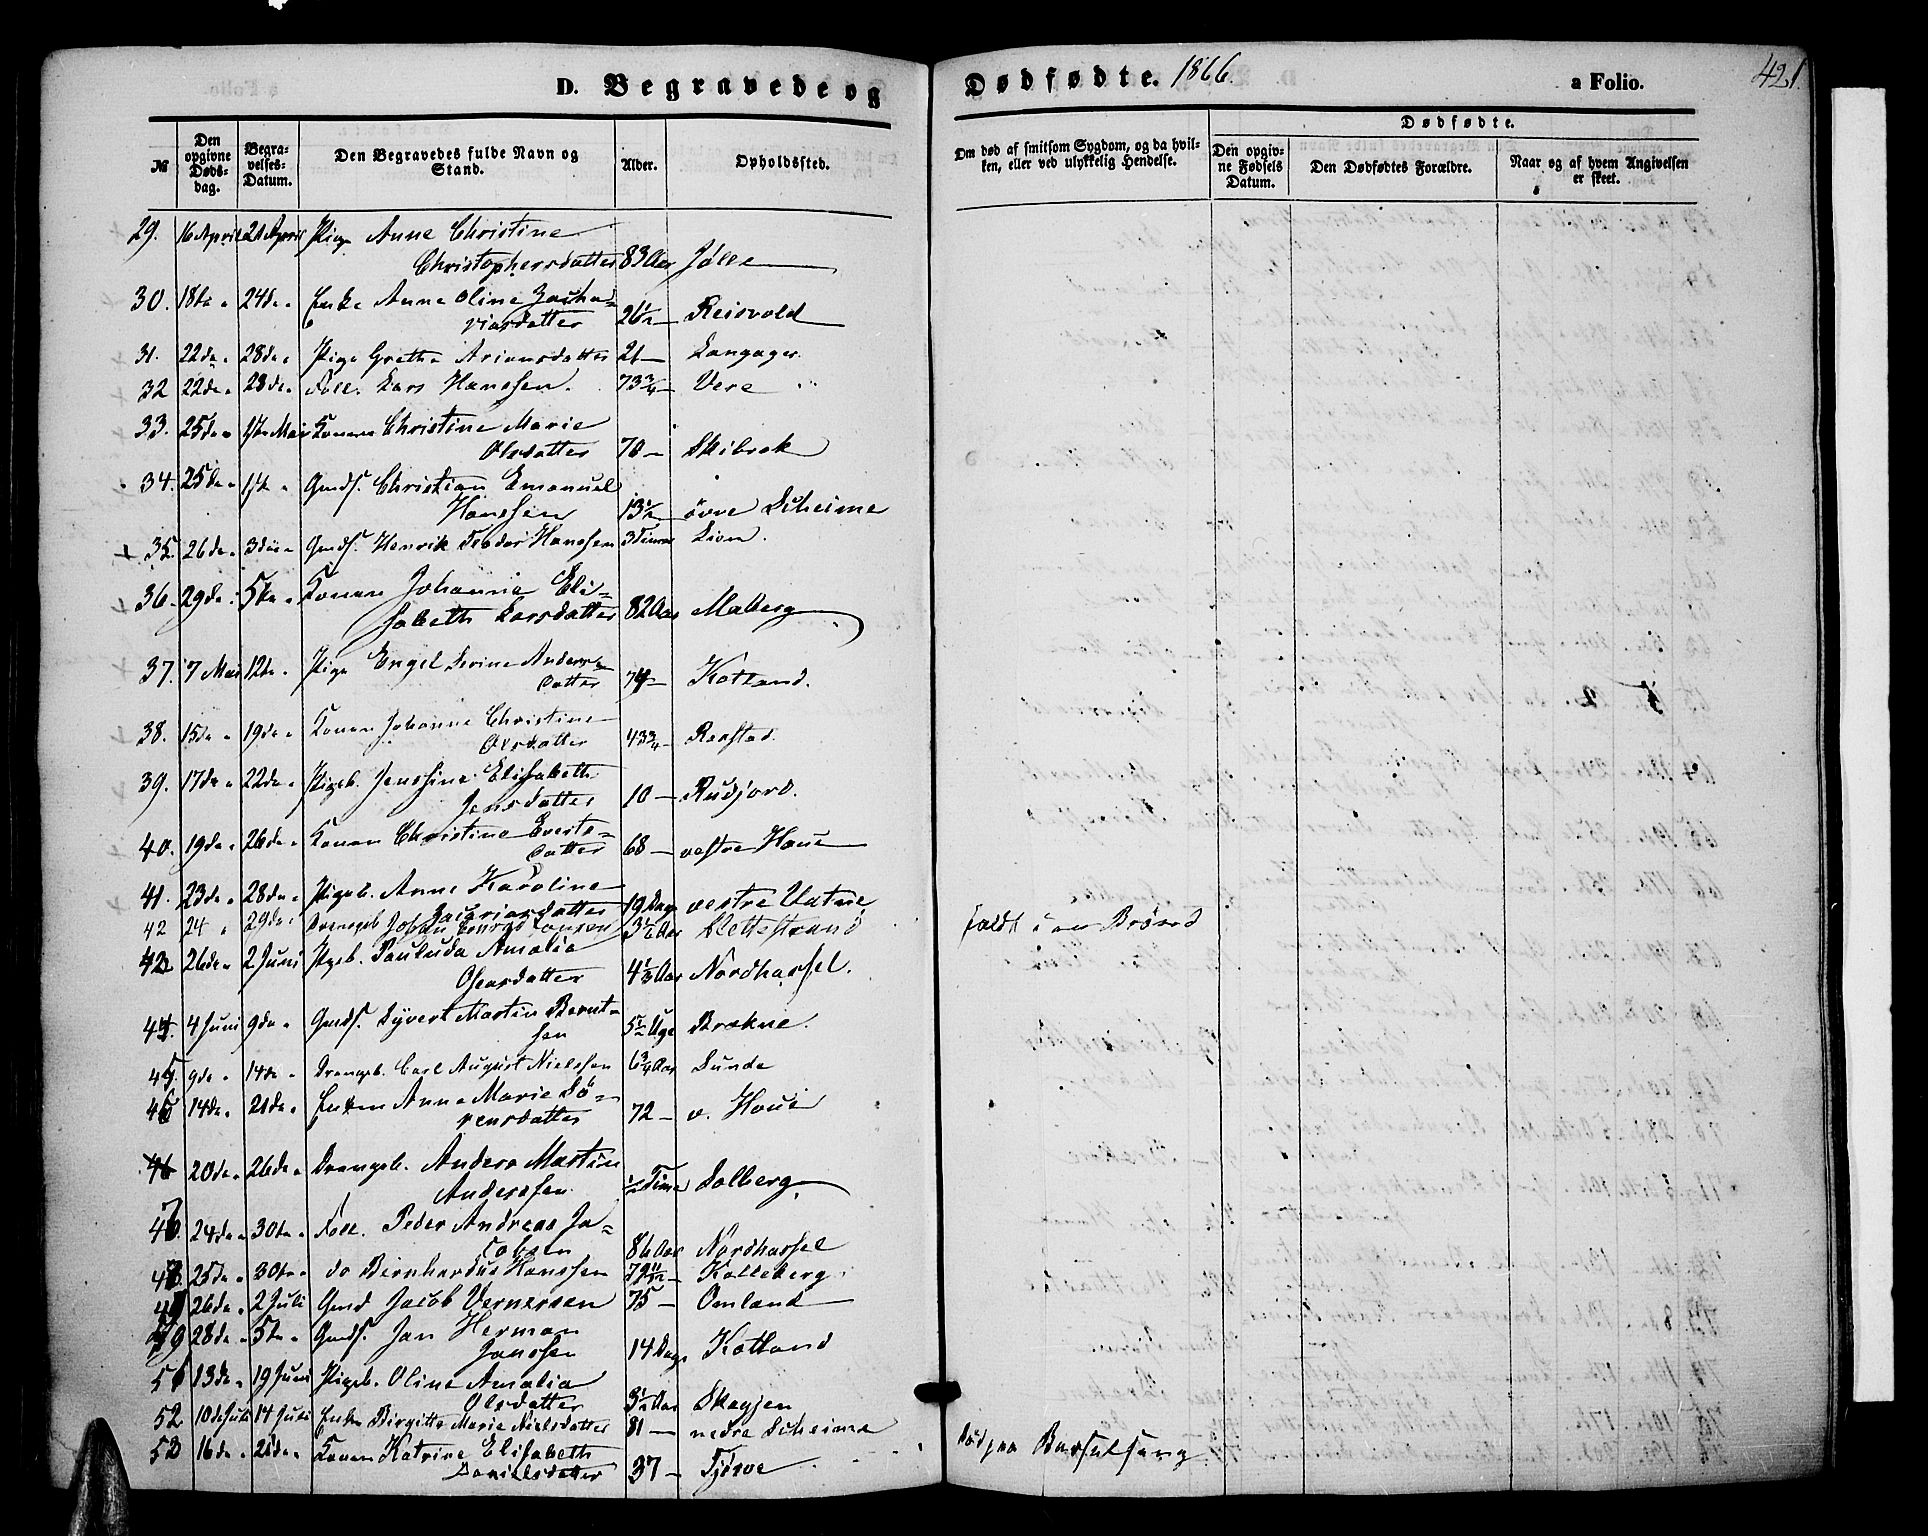 D. Begravede og Dødfødte. 1866. a Folio. 421.
№ Den opgivne Dødsdag. Begravelses-Datum. Den Begravedes fulde Navn og Stand. Alder. Opholdssted. Om død af smitsom Sygdom, og da hvilken, eller ved ulykkelig Hendelse. Dødfødte. Den opgivne Fødsels Datum. Den Dødfødtes Forældre. Naar og af hvem Angivelsen er skeet.
29. 16 April 21 April Pige Anne Christine
Christophersdatter 83 Aar Jølle
30. 18de " 24de " Enke Anne Oline Zacha-
riasdatter 26½ — Reisvold
31. 22de " 28de " Pige Grethe Ariansdatter 21 — Langager.
32 22de " 28de " Foll. Lars Hanssen. 73¾ — Vere
33. 25de " 1ste Mai Konen Christine Marie
Olsdatter 70 — Skibrok
34. 25de " 1ste " Gmds. Christian Emanuel
Hanssen 13½ — øvre Scheime
35. 26de " 3die " Gmds. Henrik Teodor Hanssen 3 Timer Lion.
36. 29de " 5te " Konen Johanne Eli-
sabeth Larsdatter 82 Aar Maberg
37. 7 Mai 12te " Pige Engel Serine Anders-
datter 74 — Kotland.
38. 15de " 19de " Konen Johanne Christine
Olsdatter 43¾ — Raastad.
39. 17de " 22de " Pigeb. Jenssine Elisabeth
Jensdatter 10 — Rudjord.
40. 19de " 26de " Konen Christine Everts-
datter 68 — vestre Houe
41. 23de " 28de " Pigeb. Anne Karoline
Zacariasdatter 19 Dage vestre Vatne
42 24 " 29de " Drengeb. Johan Conrad Jonsen 3½ Aar Slettestrand faldt i en Brønd
43 26de " 2 Juni Pigeb. Pauluda Amalia
Osensdatter 4⅓ Aar Nordhassel.
44. 4 Juni 9de " Gmds. Syvert Martin Bernt-
sen 5½ Uge Brækne.
45. 9de " 14de " Drengeb. Carl August Nielssen 6¾ Aar Lunde
46 14de " 21de " Enken Anne Marie Sø-
rensdatter 72 — v. Houe
46 20de " 26de " Drengeb. Anders Martin
Anderssen ½ Time Dolberg
47 24de " 30te " Foll. Peder Andreas Ja-
cobsen 86 Aar Nordhassel
48 25de " 30te " do Bernhardus Hanssen 79 11/12 — Kalleberg.
49 26de " 2 Juli Gmd Jacob Vernersen 75 — Omland
49 28de " 5te " Gmds. Jan Herman
Janssen 14 Dage Kotland
51 13de " 19 Juni Pigeb. Oline Amalia
Olsdatter 3½ Aar Skeyjen
52 10de Juli 14 Juli Enke Birgitte Marie Nielsdatter 81 — nedre Scheime
53 16de " 21de " Konen Katrine Elisabeth
Danielsdatter 37 — Tjørve død paa Barselseng